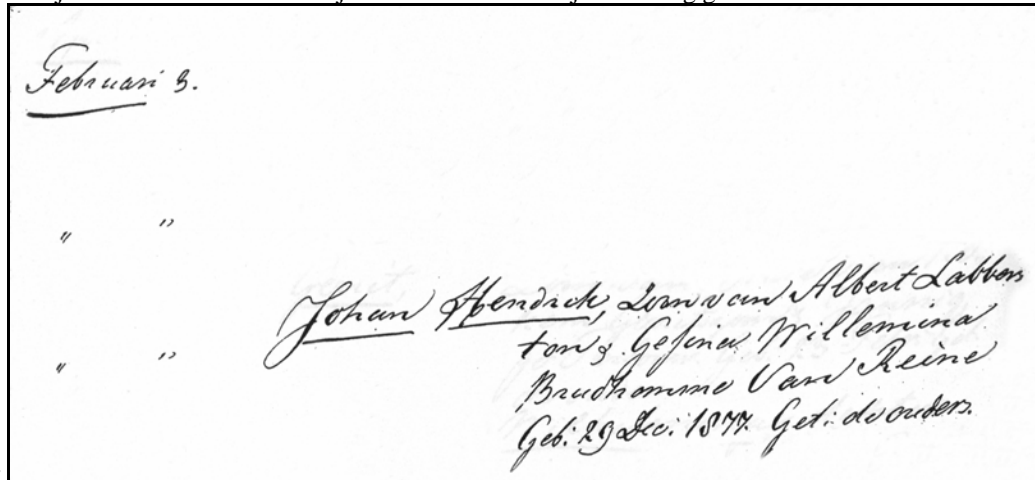 Februari 3.
" "
Johan Hendrick, Zoon van Albert Labbers
" " ton & Gesina Willemina
Brudhomme Van Reine
Geb: 29 Dec: 1877. Get: de ouders.